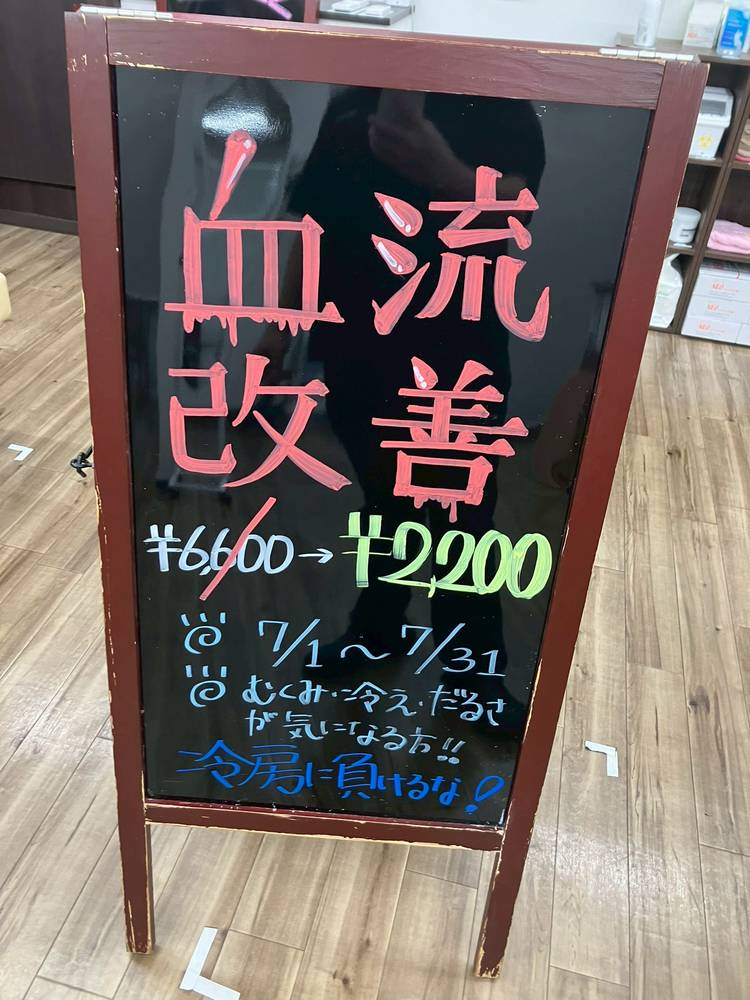 血流
改善
¥6,600→¥2,200
7/1～7/31
むくみ・冷え・だるさ
が気になる方!!
冷房に負けるな!